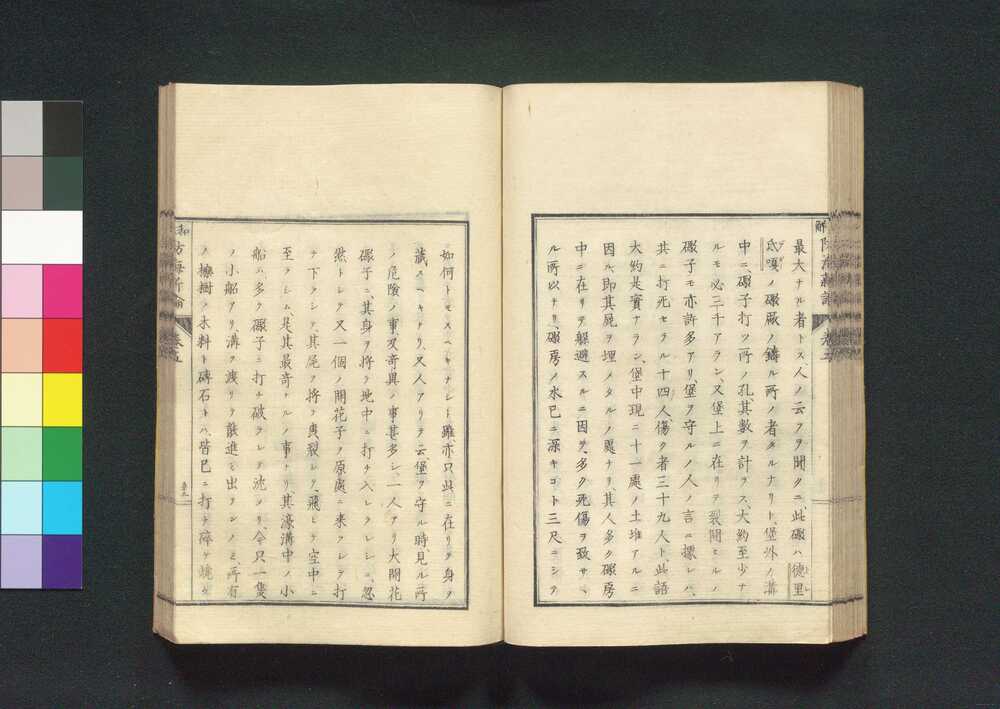 最大ナル者トス人ノ云フヲ聞クニ、此礮ハ德里
氏嘎ノ礮厰ノ鑄ル所ノ者タルナリト、堡外ノ溝
中ニ、礮子打ツ所ノ孔、其數ヲ計ラス、大約至少ナ
ルモ必二千アラン、又堡上ニ在リテ裂開セルノ
礮子モ亦許多アリ、堡ヲ守ルノ人ノ言ニ據レハ、
共ニ打死セラル十四人傷ク者三十九人ト此語
大約是實ナラン、堡中現ニ十一處ノ土堆アルニ
因ル、即其屍ヲ埋メタルノ處ナリ、其人多ク礮房
中ニ在リテ躱避スルニ因テ、多ク死傷ヲ致サヽ
ル所以ナリ、礮房ノ水已ニ深キコト三尺ニシテ
如何トモスヘキナシト雖、亦只此ニ在リテ身ヲ
藏スヘキナリ、又人アリテ云、堡ヲ守ル時、見ル所
ノ危險ノ事、及奇異ノ事甚多シ、一人アリ大開花
礮子ニ、其身ヲ將テ地中ニ打チ入レラレシニ、忽
然トシテ又一個ノ開花子ヲ原處ニ来テレテ打
チ下ラシテ、其屍ヲ將テ曳裂シテ、飛ヒテ空中ニ
至ラシム、是其最奇ナルノ事ナリ、其濠溝中ノ小
船ハ多ク礮子ニ打チ破ラレテ沈メリ、今只一隻
ノ小船アリ、溝ヲ渡リテ散進シ出ラシノミ、所有
ノ橡樹ノ木料ト磚石トハ、皆已ニ打チ碎ケ燒ケ
卷五